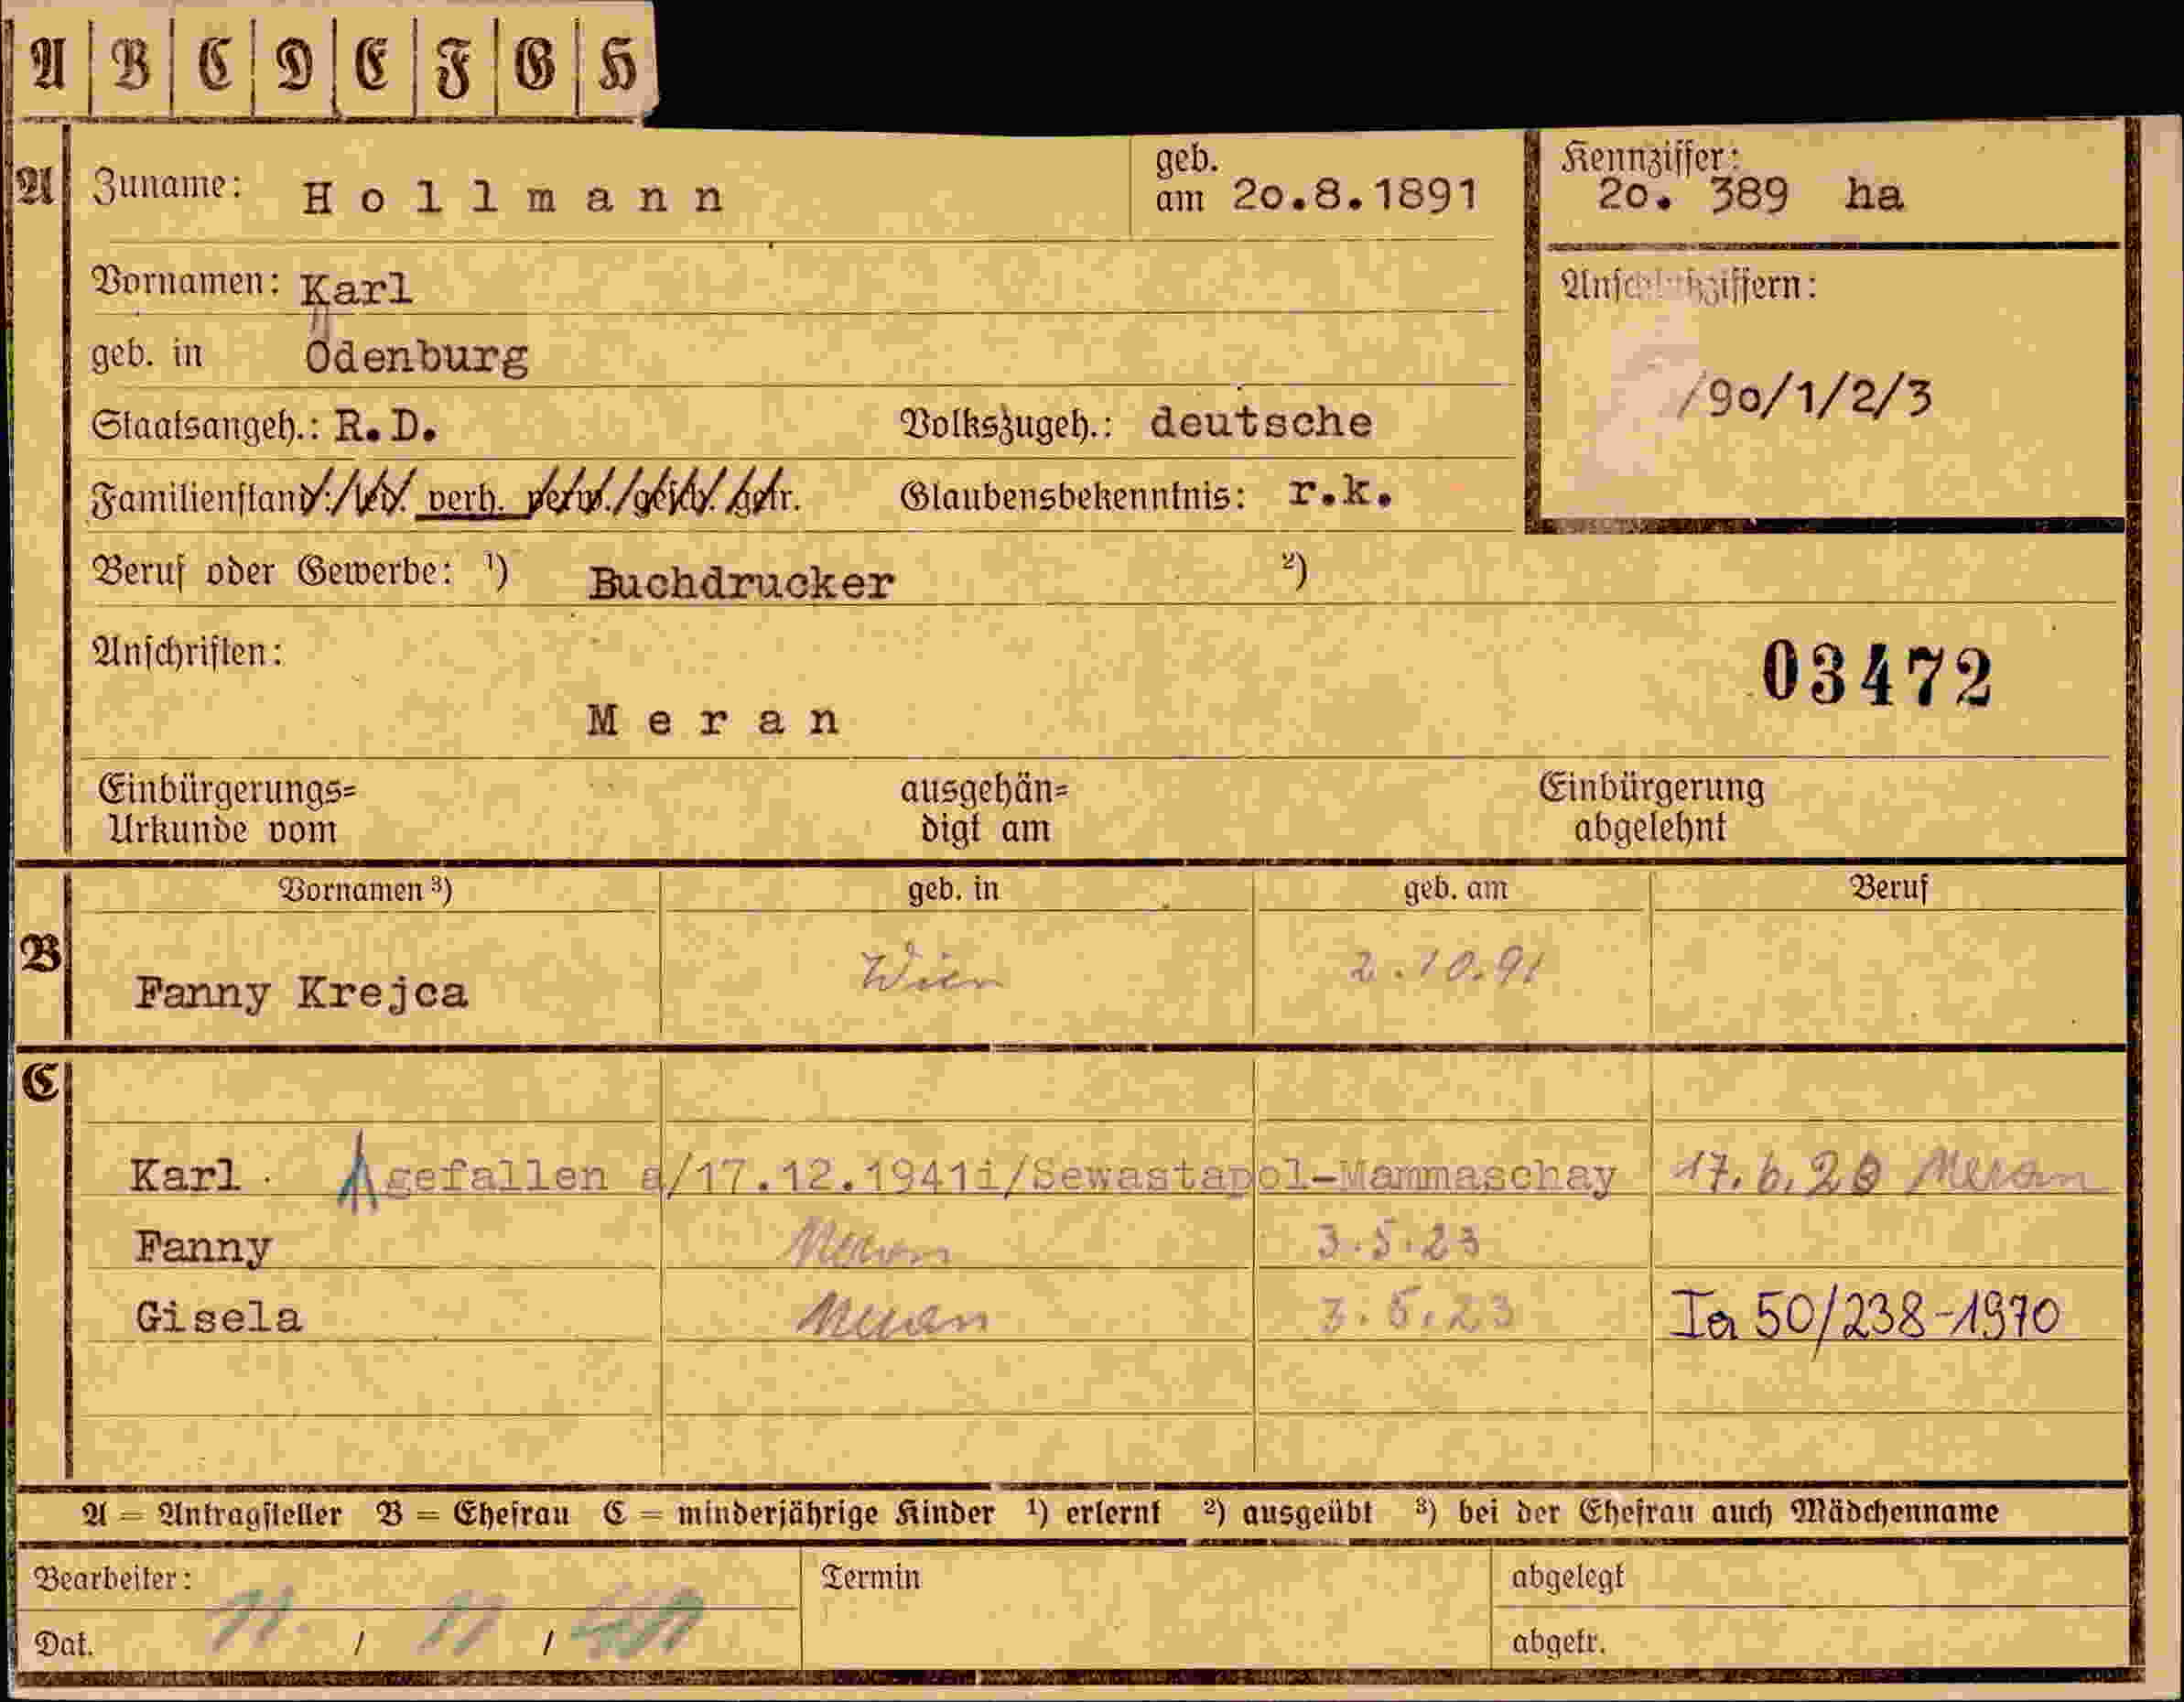 A B C D E F G H
A Zuname: Hollmann geb. am 20.8.1891 Kennziffer: 20. 389 ha
Vornamen: Karl Anschlußziffern:
geb. in Ödenburg
/90/1/2/3
Staatsangeh.: R.D. Volkszugeh.: deutsche
Familienstand: led. verh. verw. gesch. getr. Glaubensbekenntnis: r.k.
Beruf oder Gewerbe: ¹) Buchdrucker ²)
Anschriften: 03472
Meran
Einbürgerungs= ausgehän= Einbürgerung
Urkunde vom digt am abgelehnt
Vornamen ³) geb. in geb. am Beruf
B Fanny Krejca Wien 2.10.91
C
Karl gefallen a/17.12.1941i/Sewastapol-Mammaschay 17.6.20 Meran
Fanny Meran 3.5.23
Gisela Meran 3.5.23 Ia 50/238-1970
A = Antragsteller B = Ehefrau C = minderjährige Kinder ¹) erlernt ²) ausgeübt ³) bei der Ehefrau auch Mädchenname
Bearbeiter: Termin abgelegt
Dat. 11. / 11 / abgetr.